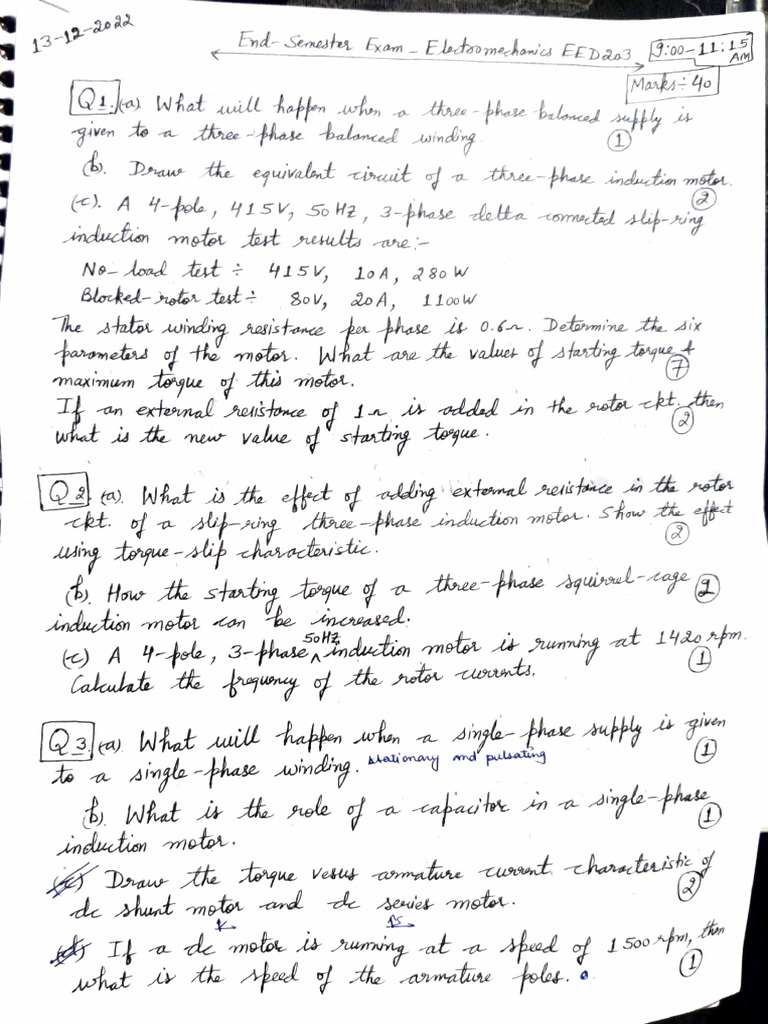 13-12-2022
End-Semester Exam - Electromechanics EED203
9:00-11:15 AM
Marks÷40
Q1. (a) What will happen when a three-phase balanced supply is
given to a three-phase balanced winding ①
(b). Draw the equivalent circuit of a three-phase induction motor. ②
(c). A 4-pole, 415V, 50HZ, 3-phase delta connected slip-ring
induction motor test results are:-
No-load test ÷ 415V, 10A, 280W
Blocked-rotor test ÷ 80V, 20A, 1100W
The stator winding resistance per phase is 0.6Ω. Determine the six
parameters of the motor. What are the values of starting torque +
maximum torque of this motor. ⑦
If an external resistance of 1Ω is added in the rotor ckt. then
what is the new value of starting torque. ②
Q2. (a). What is the effect of adding external resistance in the rotor
ckt. of a slip-ring three-phase induction motor. Show the effect
using torque-slip characteristic. ②
(b). How the starting torque of a three-phase squirrel-cage
induction motor can be increased. ②
(c) A 4-pole, 3-phase 50HZ induction motor is running at 1420 rpm.
Calculate the frequency of the rotor currents. ①
Q3. (a). What will happen when a single-phase supply is given
to a single-phase winding. stationary and pulsating ①
(b). What is the role of a capacitor in a single-phase
induction motor. ①
(c) Draw the torque vesus armature current characteristic of
dc shunt motor and dc series motor. ②
(d) If a dc motor is running at a speed of 1500 rpm, then
what is the speed of the armature poles. ①